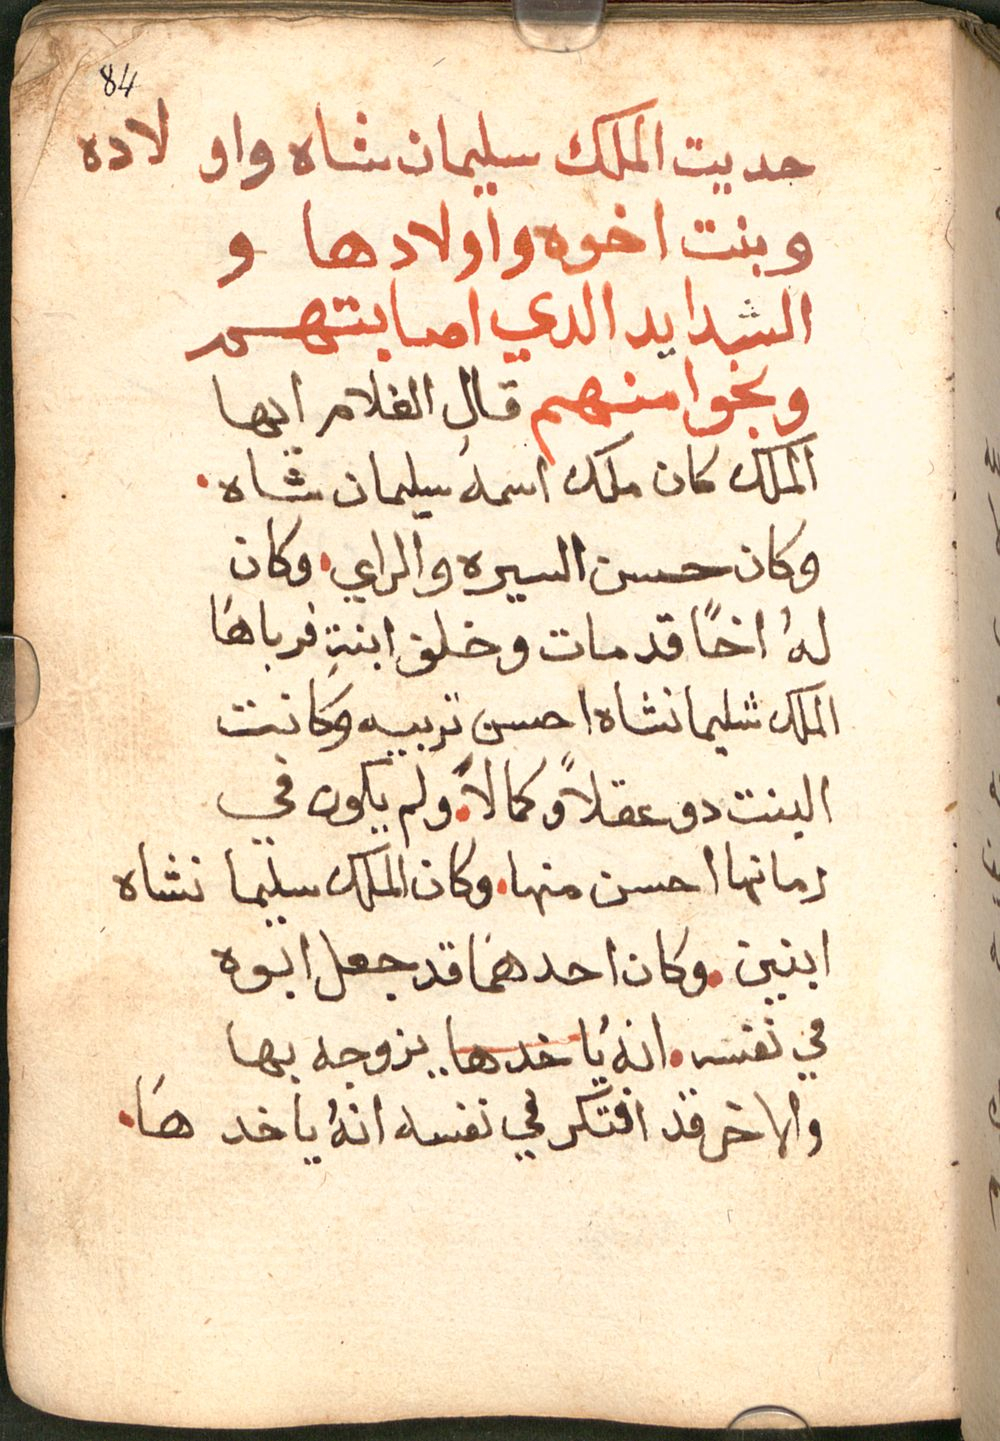 84
حديت الملك سليمان شاه واو لاده
وبنت اخوه واولادها و
الشدايد الدي اصابتهم
ونجوا منهم قال الغلام ايها
الملك كان ملك اسمهُ سليمان شاه.
وكان حسن السيره والراي. وكان
لهُ اخًا قد مات وخلف ابنةٍ فرباها
الملك شليمانشاه احسن تربيه وكانت
البنت دو عقلاً وكمالاً. ولم يكون في
زمانها احسن منها. وكان الملك سليما نشاه
ابنين. وكان احدهما قد جعل ابوه
في نفسه. انهُ ياخدها يزوجه بها
والاخر قد افتكر في نفسه انهُ ياخد ها.